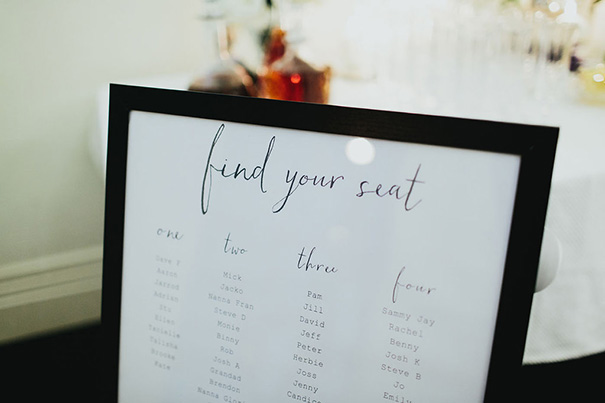 find your seat
one
Dave P
Keith
Jarrod
Adrian
Sti
Eilen
Danielle
Kalisha
Brooke
Kate
two
Mick
Jacko
Nanna Fran
Steve D
Konie
Binny
Rob
Josh A
Grandad
Brendon
Nanna
three
Pam
Jill
David
Jeff
Peter
Herbie
Joss
Jenny
Candice
four
Sammy Jay
Rachel
Benny
Josh K
Steve B
Jo
Emily